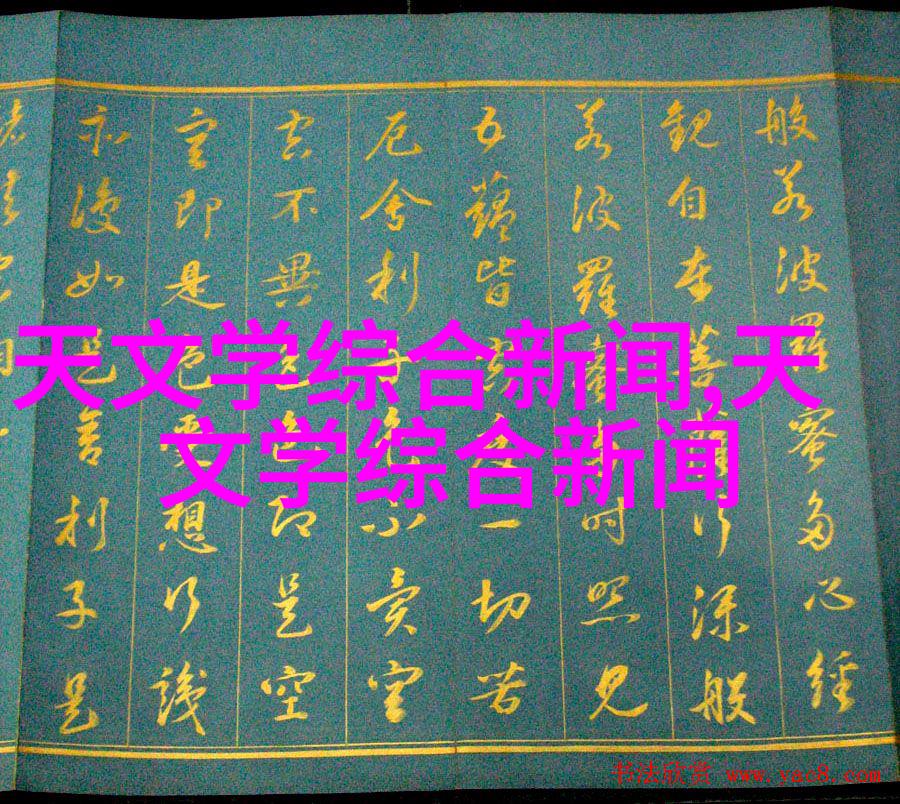 般若波羅蜜多心經
觀自在菩薩行深般
若波羅蜜多時照見
五蘊皆空度一切苦
厄舍利子色不異空
空不異色色即是空
空即是色受想行識
亦復如是舍利子是
天文学综合新闻,天
文学综合新闻
书法欣赏 www.yac8.com